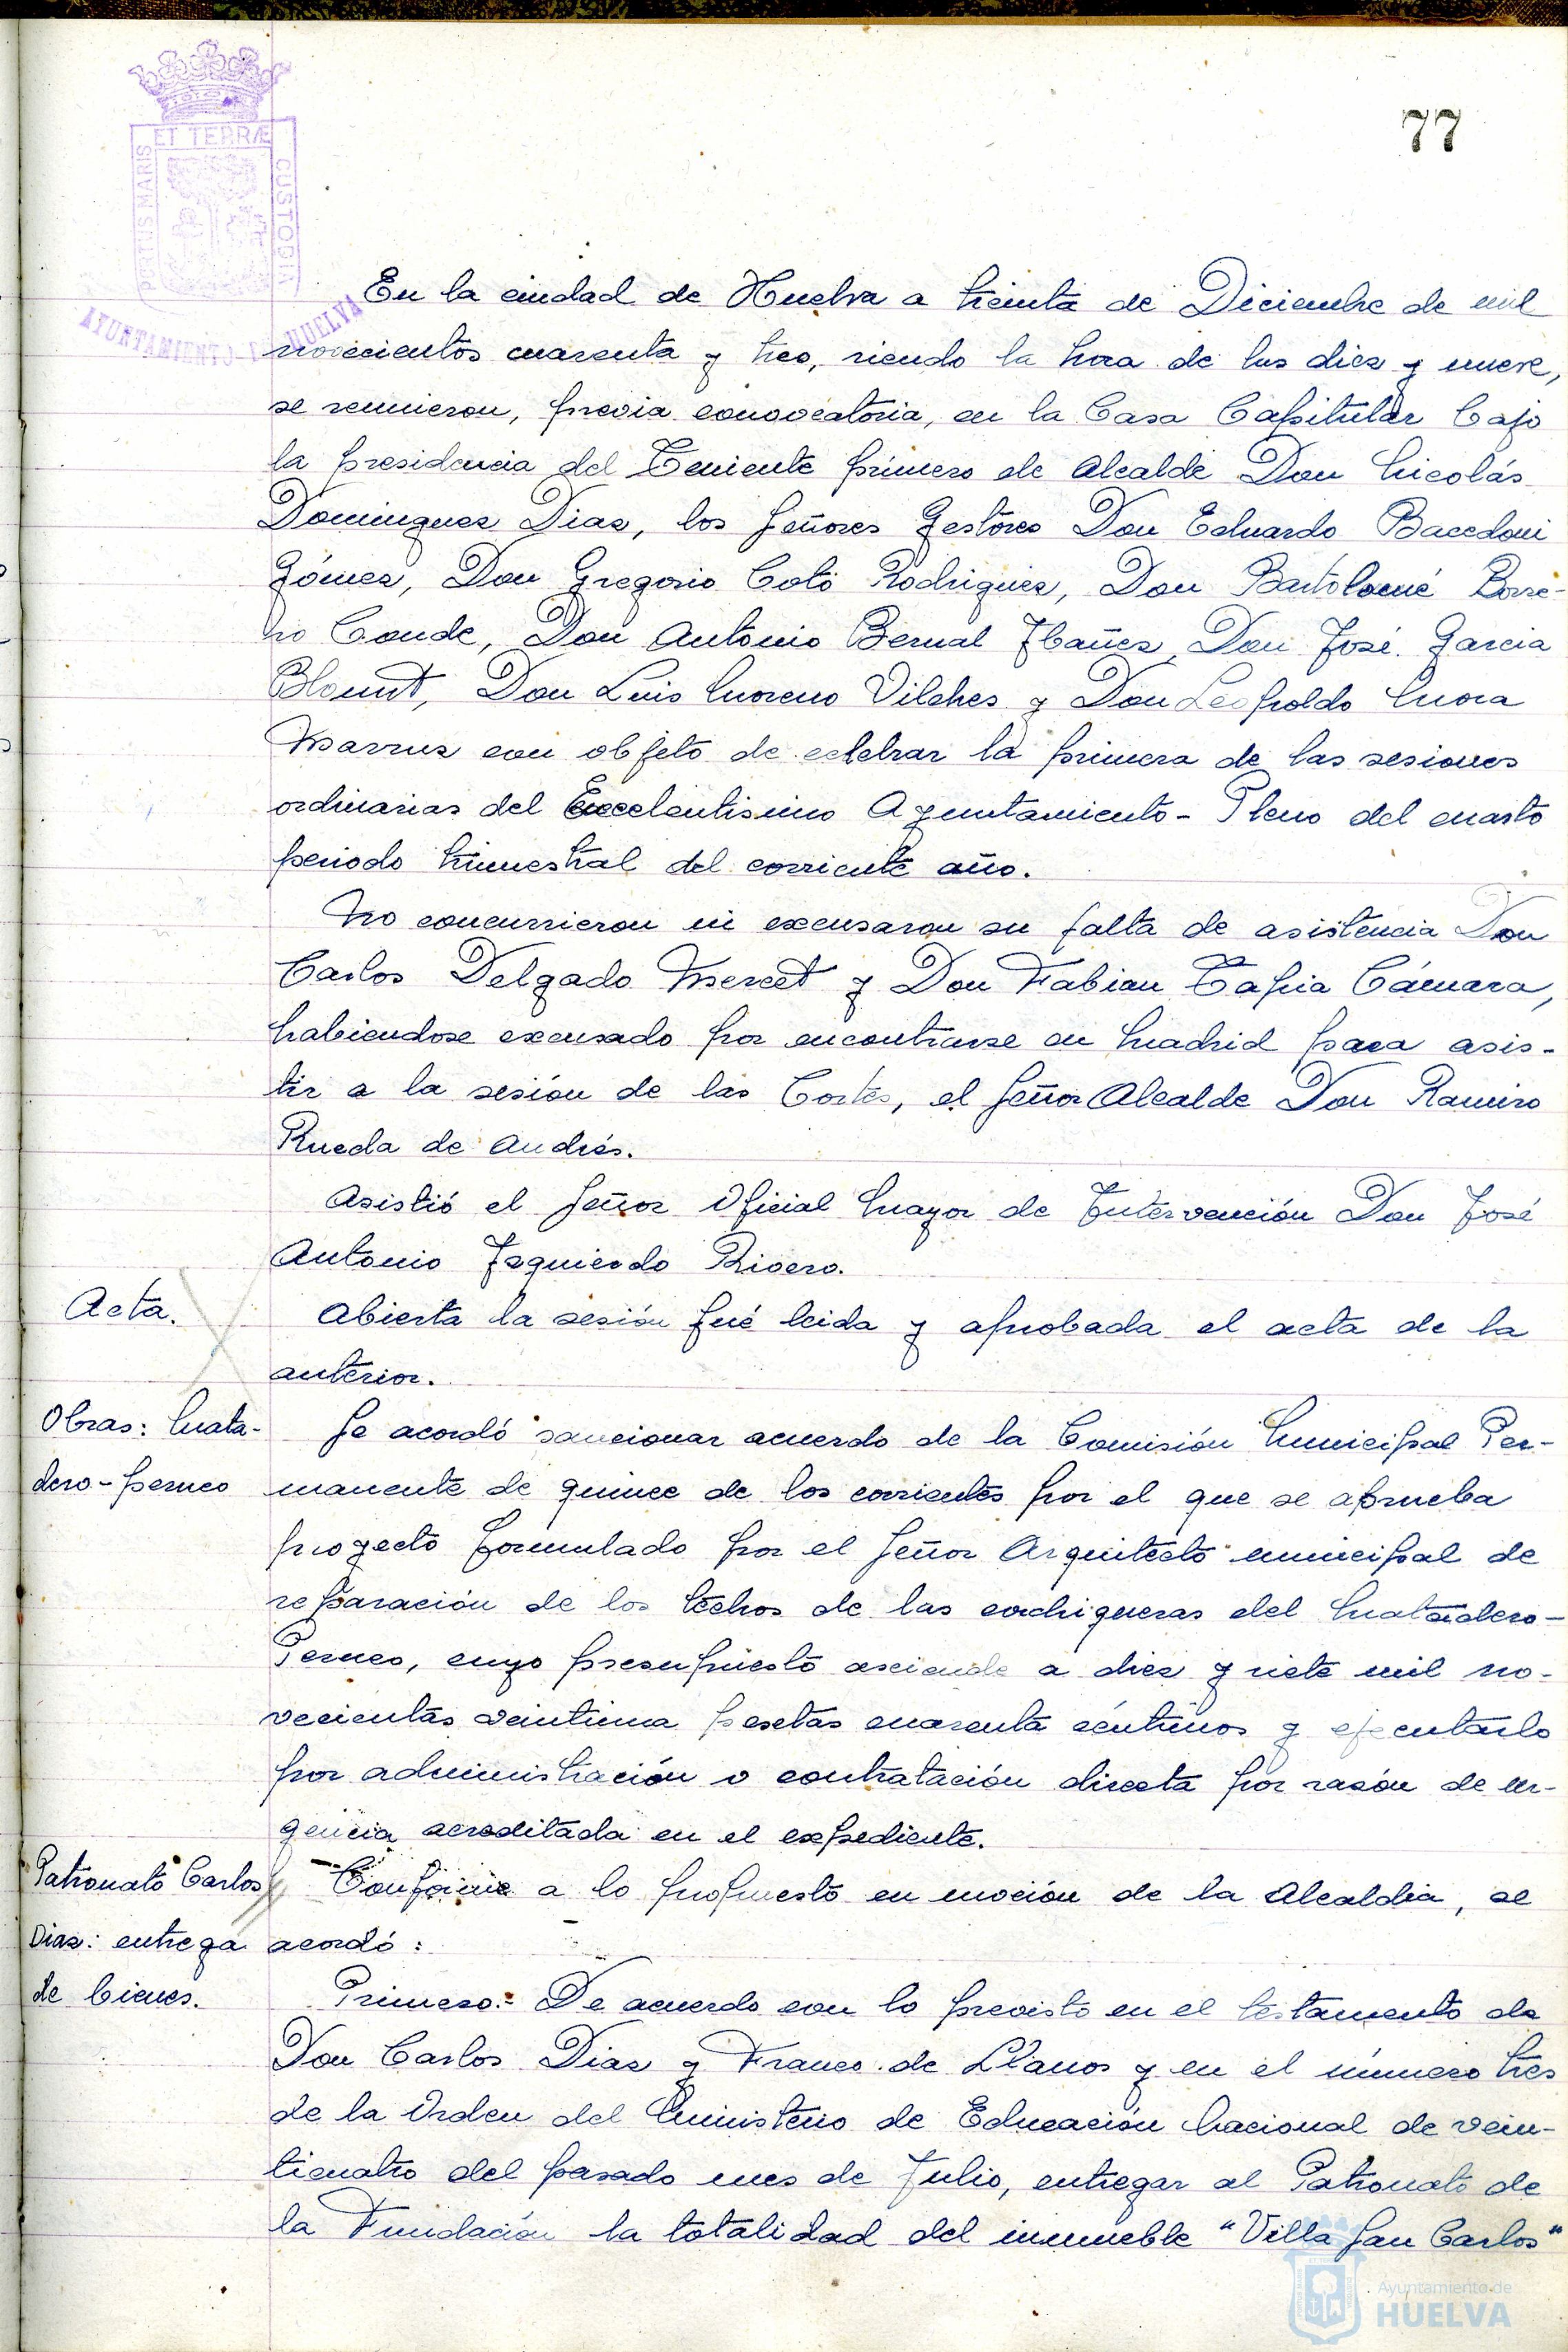 77
PORTUS MARIS ET TERRÆ CUSTODIA
AYUNTAMIENTO DE HUELVA
En la ciudad de Huelva a treinta de Diciembre de mil
novecientos cuarenta y tres, siendo la hora de las diez y nueve,
se reunieron, previa convocatoria, en la Casa Capitular bajo
la presidencia del Teniente primero de Alcalde Don Nicolás
Dominguez Diaz, los Señores Gestores Don Eduardo Bacedoni
Gómez, Don Gregorio Coto Rodriguez, Don Bartolomé Borre-
ro Conde, Don Antonio Bernal Ibañez, Don José Garcia
Blount, Don Luis Moreno Vilches y Don Leopoldo Mora
Marruz con objeto de celebrar la primera de las sesiones
ordinarias del Excelentisimo Ayuntamiento-Pleno del cuarto
periodo trimestral del corriente año.
No concurrieron ni excusaron su falta de asistencia Don
Carlos Delgado Mercet y Don Fabian Tapia Cámara,
habiendose excusado por encontrarse en Madrid para asis-
tir a la sesión de las Cortes, el Señor Alcalde Don Ramiro
Rueda de Andrés.
Asistió el Señor Oficial Mayor de Intervención Don José
Antonio Izquierdo Rivero.
Acta.
Abierta la sesión fué leida y aprobada el acta de la
anterior.
Obras: Mata-
dero-perneo
Se acordó sancionar acuerdo de la Comisión Municipal Per-
manente de quince de los corrientes por el que se aprueba
proyecto formulado por el Señor Arquitecto municipal de
reparación de los techos de las cochiqueras del Matadero-
Perneo, cuyo presupuesto asciende a diez y siete mil no-
vecientas veintiuna pesetas cuarenta céntimos y ejecutarlo
por administración o contratación directa por razón de ur-
gencia acreditada en el expediente.
Patronato Carlos
Diaz: entrega
de bienes.
Conforme a lo propuesto en moción de la Alcaldia, se
acordó:
Primero.- De acuerdo con lo previsto en el testamento de
Don Carlos Diaz y Franco de Llanos y en el número tres
de la Orden del Ministerio de Educación Nacional de vein-
ticuatro del pasado mes de Julio, entregar al Patronato de
la Fundación la totalidad del inmueble "Villa San Carlos"
Ayuntamiento de
HUELVA